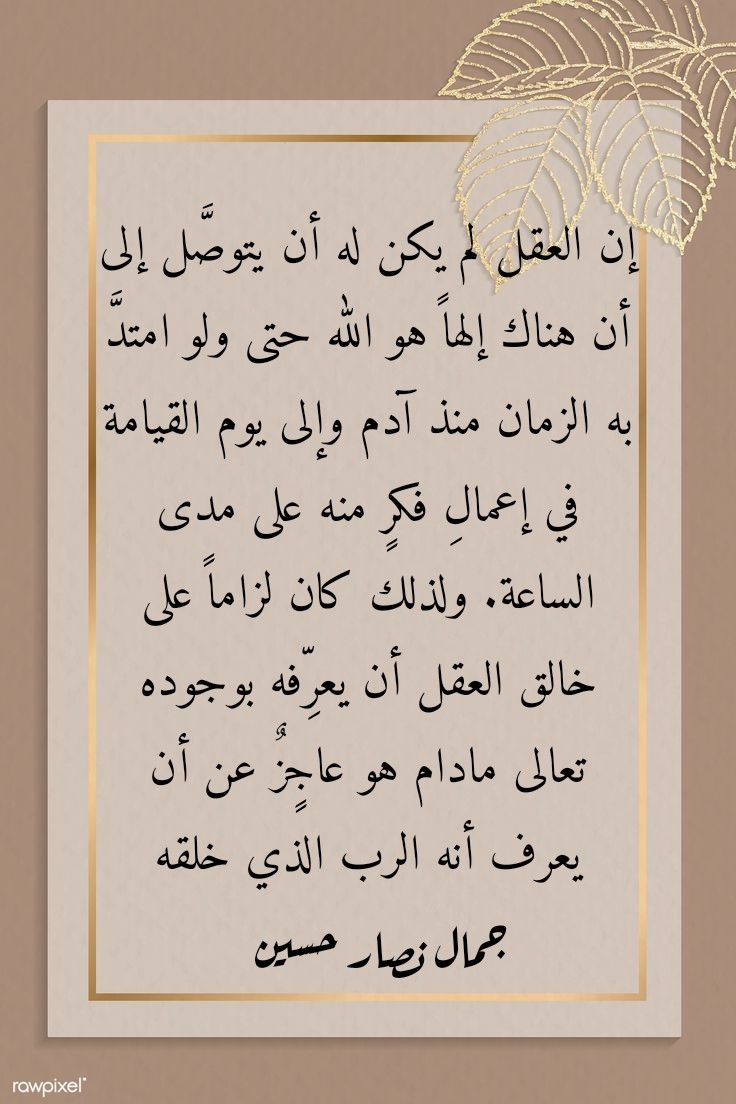 إن العقل لم يكن له أن يتوصَّل إلى
أن هناك إلهاً هو الله حتى ولو امتدَّ
به الزمان منذ آدم وإلى يوم القيامة
في إعمالِ فكرٍ منه على مدى
الساعة. ولذلك كان لزاماً على
خالق العقل أن يعرِّفه بوجوده
تعالى مادام هو عاجٍزٌ عن أن
يعرف أنه الرب الذي خلقه
جمال نصار حسين
rawpixel